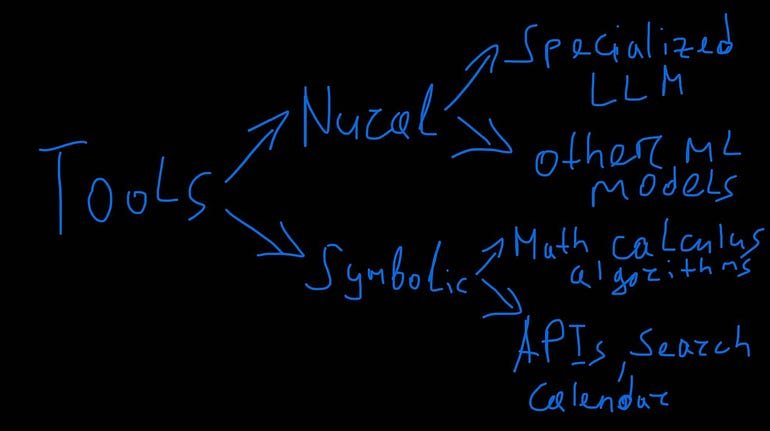 Tools
Nural
Specialized
LLM
other ML
models
Symbolic
Math calculus
algorithms
APIs, Search
Calendar